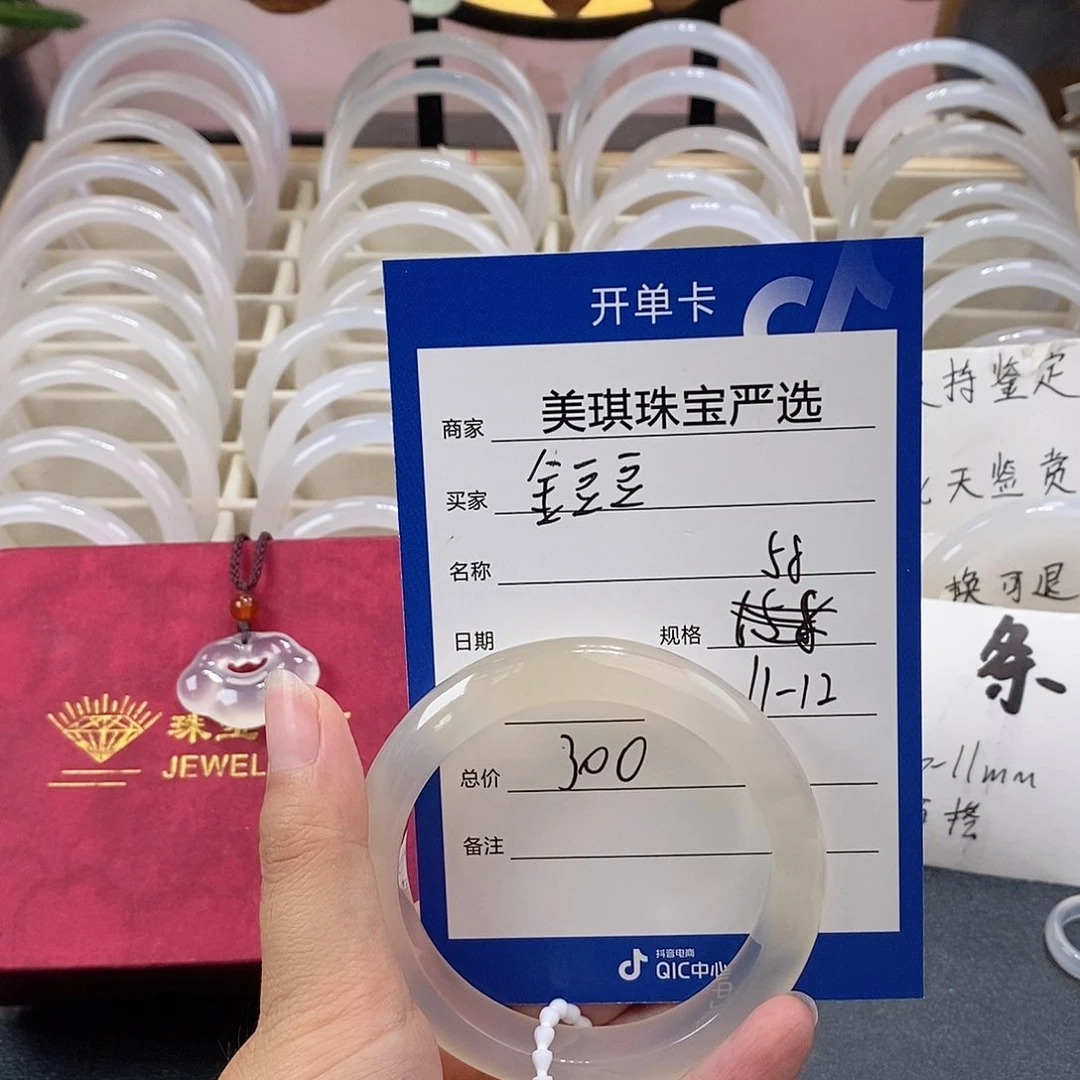 开单卡
商家 美琪珠宝严选
买家 金豆豆
名称 58
日期 规格
11-12
总价 300
备注
抖音电商
QIC中心
JEWEL
持鉴定
天监赏
换可退
条
-11mm